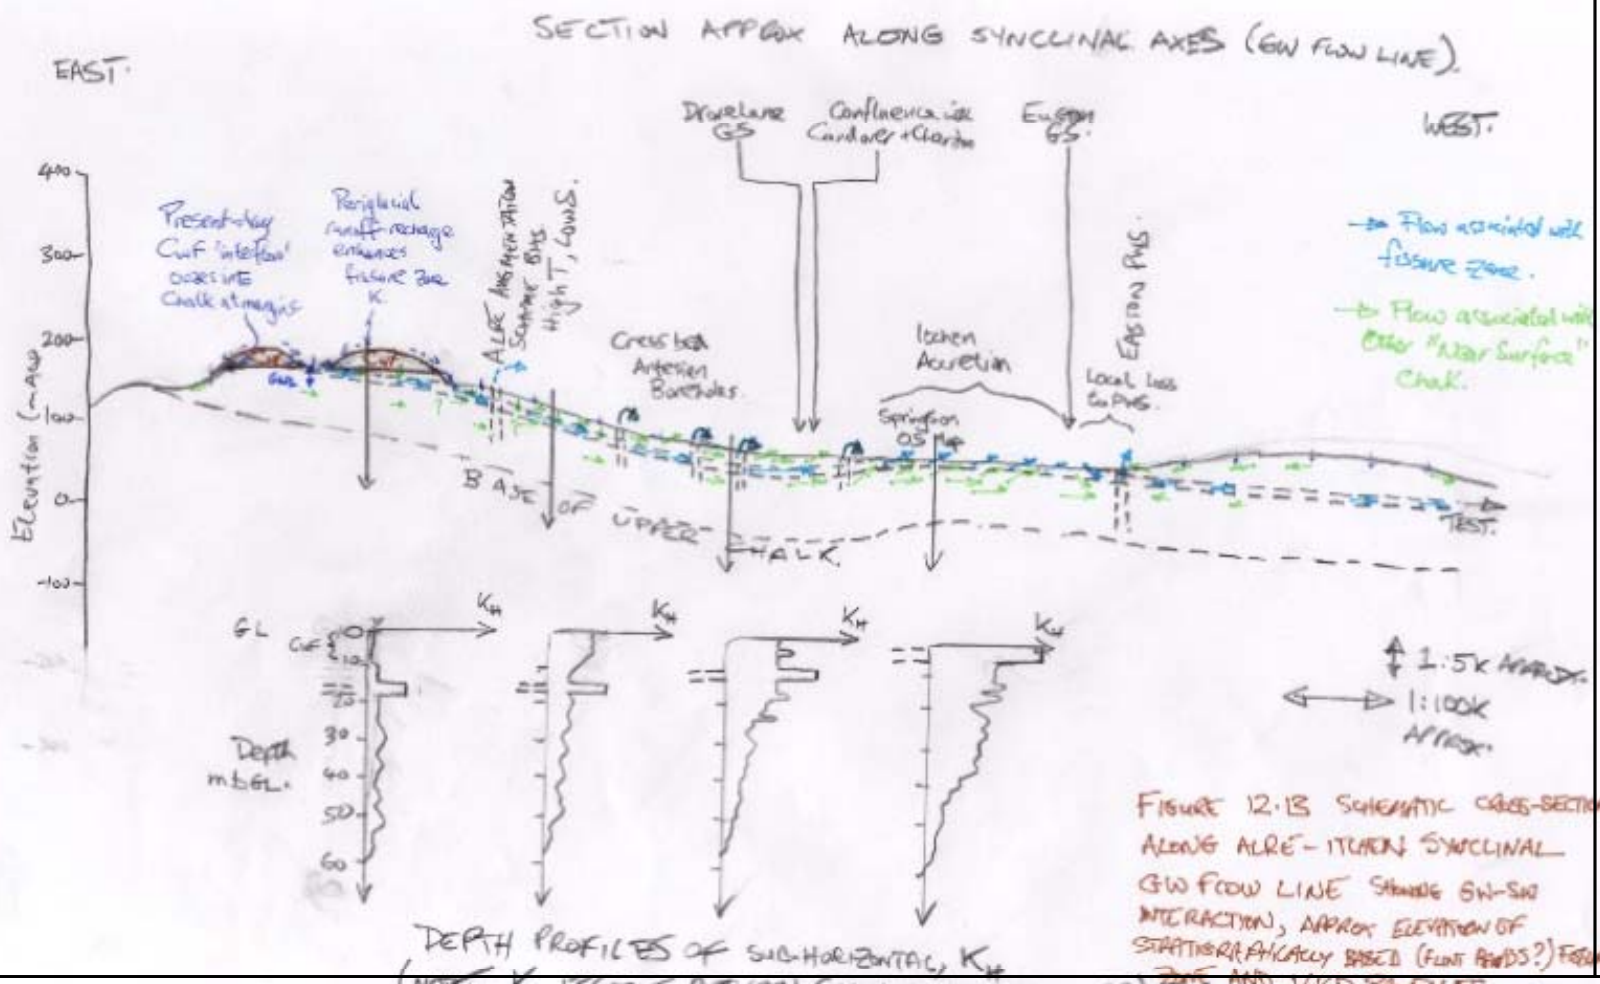 SECTION APPROX ALONG SYNCLINAL AXES (GW FLOW LINE).
EAST.
WEST.
Drovelane
GS
Confluence
Candover + Cheriton
Easton
GS.
400
300
200
100
0
-100
Elevation (mAOD)
Present-day
CwF 'interflow'
oozes into
Chalk at margins
Periglacial
runoff-recharge
enhances
fissure zone
K
ALRE AUGMENTATION
SCHEME BHS
High T, Low S.
Cress bed
Artesian
Boreholes.
Itchen
Accretion
Springs on
OS Map
EASTON PWS.
Local loss
to PWS.
Flow associated with
fissure zone.
Flow associated with
Other "Near Surface"
Chalk.
CwF
CwF
GWL
?
BASE OF UPPER CHALK.
TEST.
GL
CwF
0
10
20
30
40
50
60
Depth
mbGL.
KH
KH
KH
KH
1:5K APPROX.
1:100K
APPROX.
DEPTH PROFILES OF SUB-HORIZONTAL, KH
FIGURE 12.13 SCHEMATIC CROSS-SECTION
ALONG ALRE - ITCHEN SYNCLINAL
GW FLOW LINE SHOWING GW-SW
INTERACTION, APPROX ELEVATION OF
STRATIGRAPHICALLY BASED (FLINT BANDS?)
ZONE AND